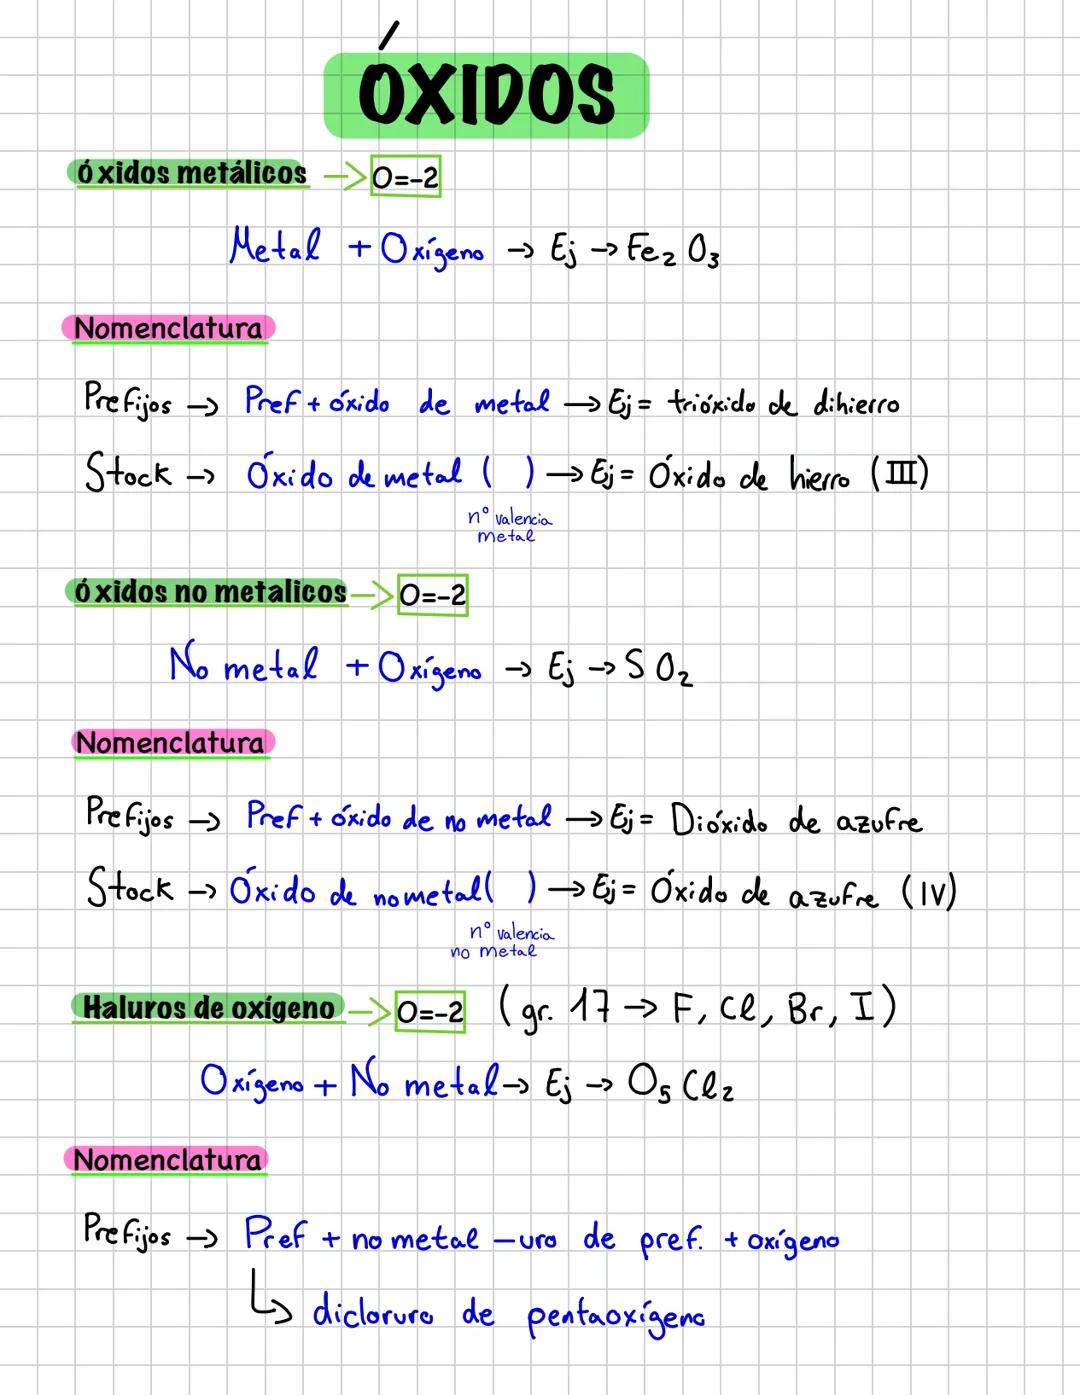 ÓXIDOS
Óxidos metálicos -> O=-2
Metal + Oxígeno → Ej → Fe₂ O₃
Nomenclatura
Prefijos → Pref + óxido de metal → Ej = trióxido de dihierro
Stock → Óxido de metal ( ) → Ej = Óxido de hierro (III)
nº valencia
metal
Óxidos no metalicos -> O=-2
No metal + Oxígeno → Ej → S O₂
Nomenclatura
Prefijos → Pref + óxido de no metal → Ej = Dióxido de azufre
Stock → Óxido de no metal ( ) → Ej = Óxido de azufre (IV)
nº valencia
no metal
Haluros de oxígeno -> O=-2 (gr. 17 → F, Cl, Br, I)
Oxígeno + No metal → Ej → O₅ Cl₂
Nomenclatura
Prefijos → Pref + no metal -uro de pref. + oxígeno
↳ dicloruro de pentaoxígeno